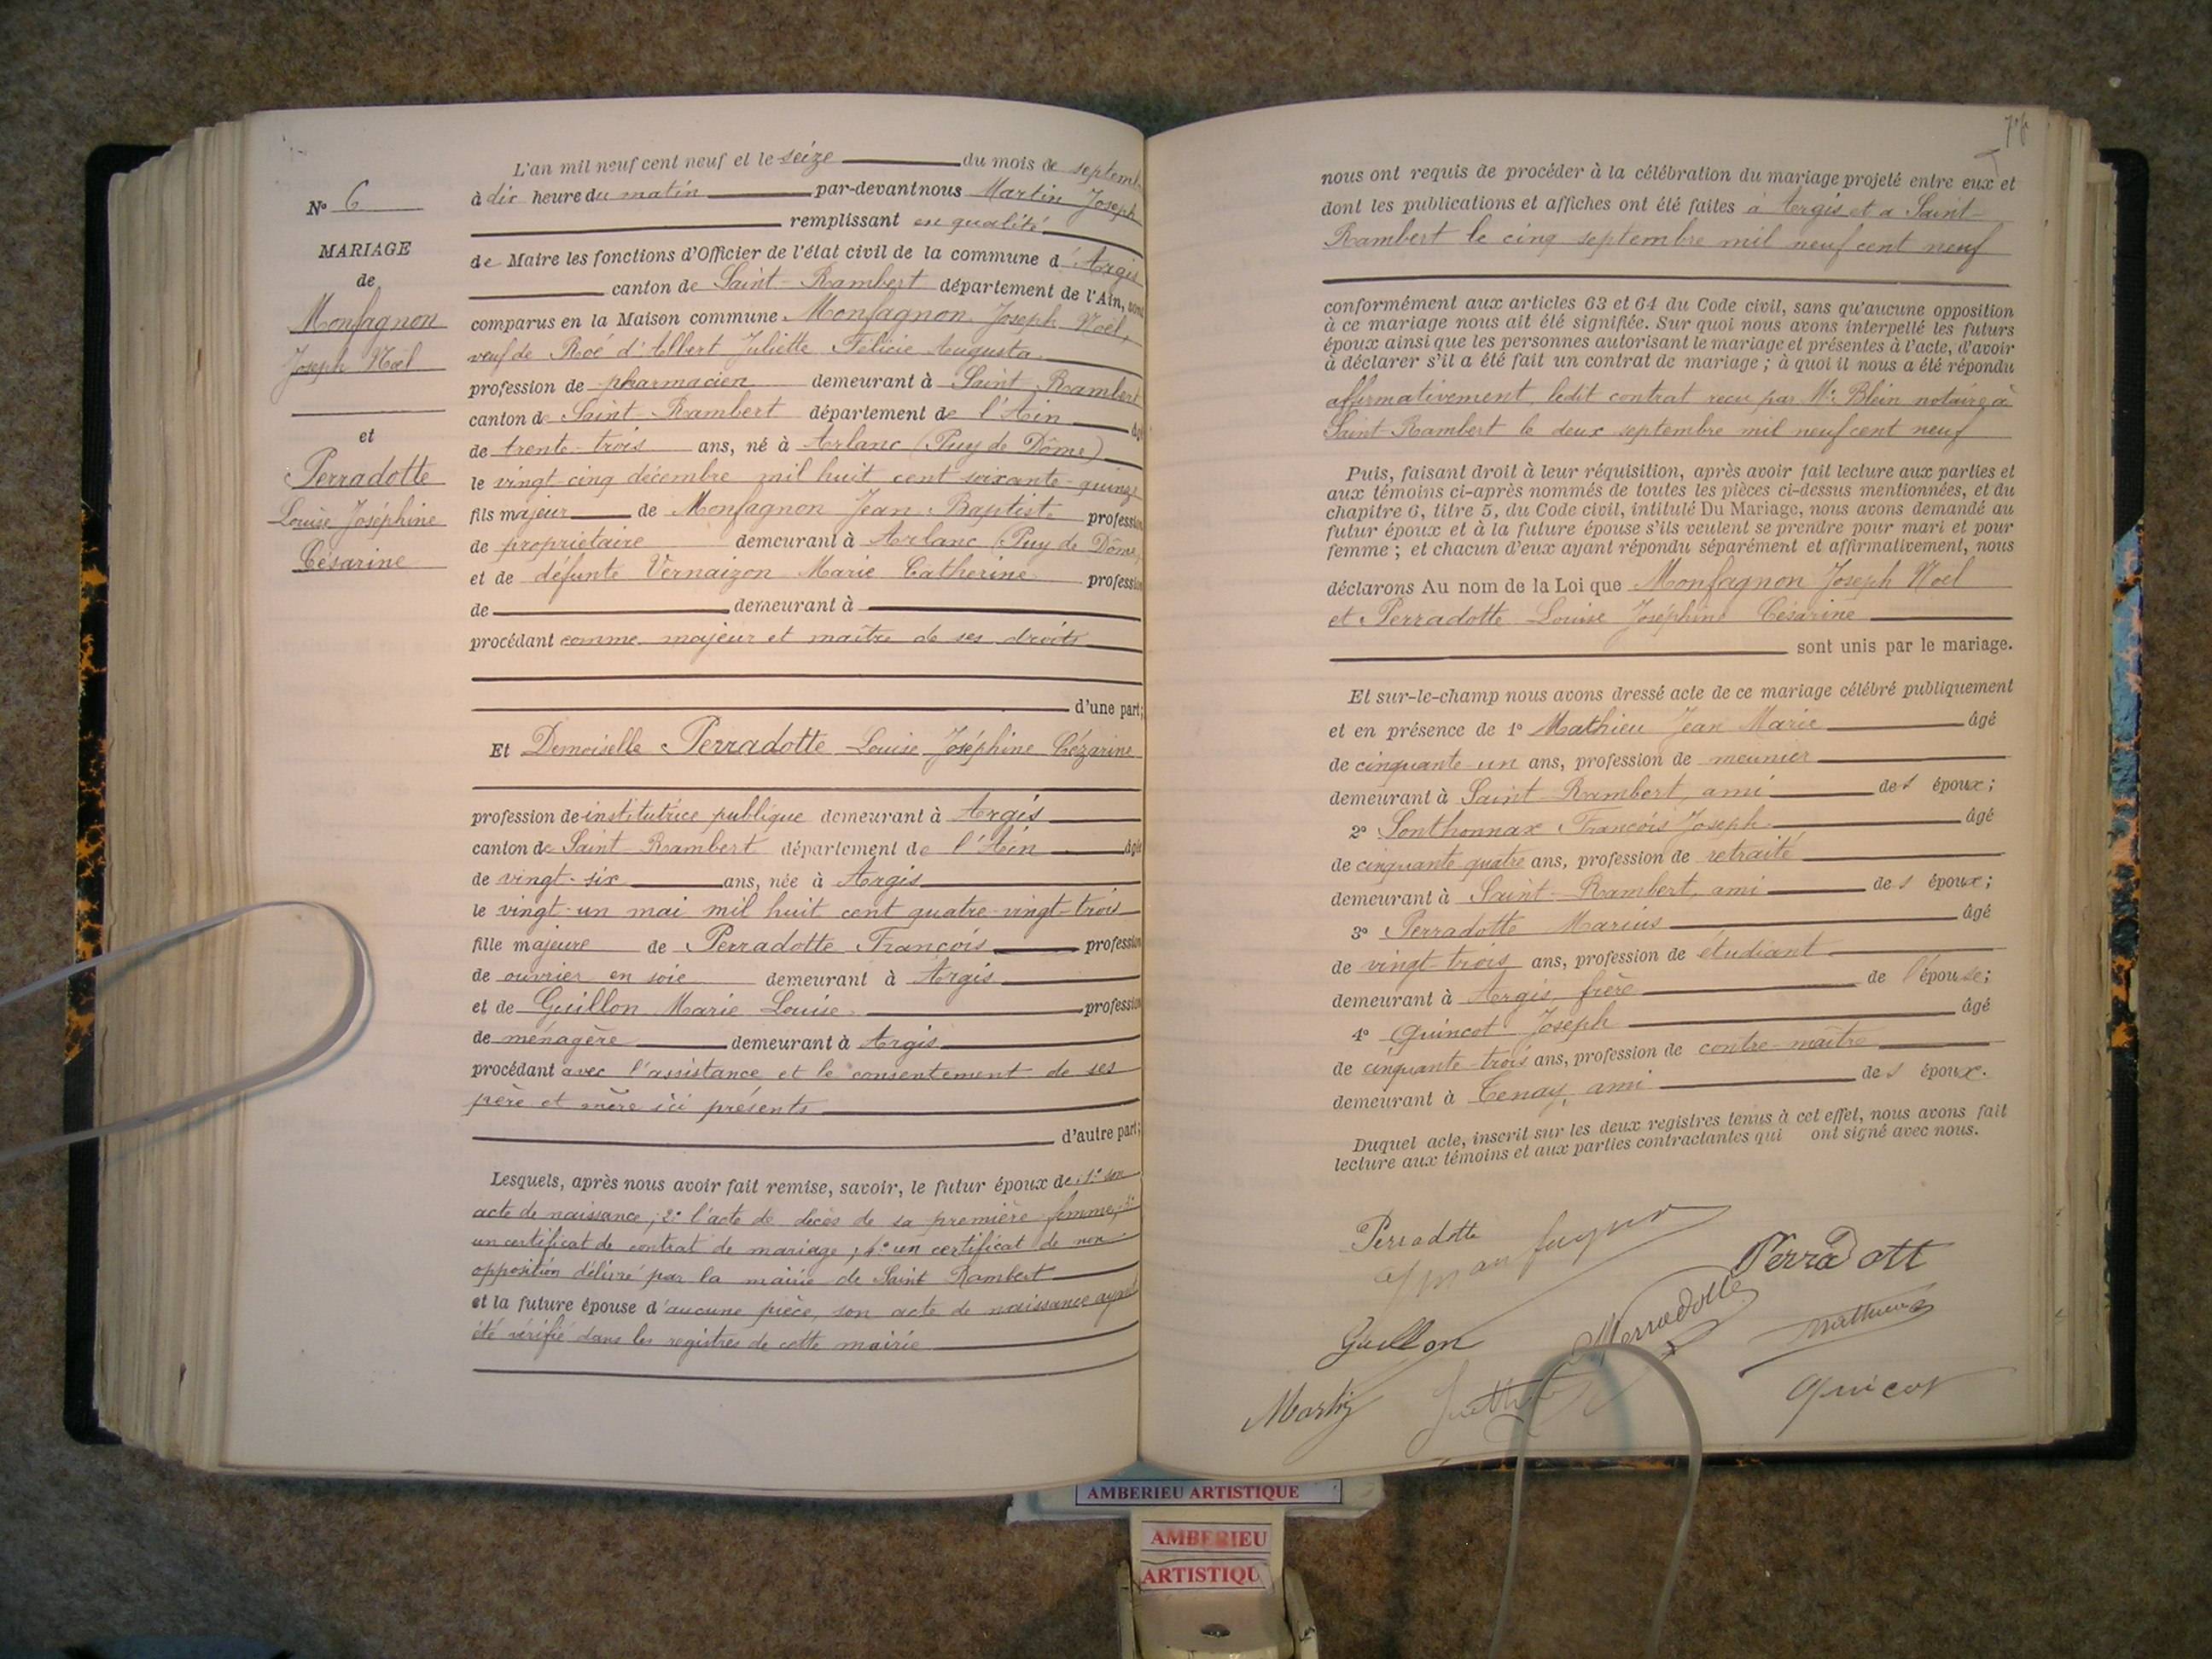 N° 6
MARIAGE
de
Monfagnon
Joseph Noël
et
Perradotte
Louise Joséphine
Césarine
L'an mil neuf cent neuf et le seize du mois de septemb
à dix heure du matin par-devant nous Martin Joseph
remplissant en qualité
de Maire les fonctions d'Officier de l'état civil de la commune d'Argis
canton de Saint-Rambert département de l'Ain, sont
comparus en la Maison commune. Monfagnon Joseph Noël,
veuf de Roé d'Albert Juliette Félicie Augusta
profession de pharmacien demeurant à Saint-Rambert
canton de Saint-Rambert département de l'Ain âgé
de trente-trois ans, né à Arlanc (Puy de Dôme)
le vingt cinq décembre mil huit cent soixante-quinze
fils majeur de Monfagnon Jean Baptiste profession
de propriétaire demeurant à Arlanc (Puy de Dôme)
et de défunte Vernaizon Marie Catherine profession
de demeurant à
procédant comme majeur et maître de ses droits
d'une part;
Et Demoiselle Perradotte Louise Joséphine Cézarine
profession de institutrice publique demeurant à Argis
canton de Saint-Rambert département de l'Ain âgée
de vingt-six ans, née à Argis
le vingt-un mai mil huit cent quatre-vingt-trois
fille majeure de Perradotte François profession
de ouvrier en soie demeurant à Argis
et de Guillon Marie Louise profession
de ménagère demeurant à Argis
procédant avec l'assistance et le consentement de ses
père et mère ici présents
d'autre part;
Lesquels, après nous avoir fait remise, savoir, le futur époux de : 1° son
acte de naissance ; 2° l'acte de décès de sa première femme, 3°
un certificat de contrat de mariage ; 4° un certificat de non
opposition délivré par la mairie de Saint Rambert
et la future épouse d'aucune pièce, son acte de naissance ayant
été vérifié dans les registres de cette mairie
nous ont requis de procéder à la célébration du mariage projeté entre eux et
dont les publications et affiches ont été faites à Argis et a Saint-
Rambert le cinq septembre mil neuf cent neuf
conformément aux articles 63 et 64 du Code civil, sans qu'aucune opposition
à ce mariage nous ait été signifiée. Sur quoi nous avons interpellé les futurs
époux ainsi que les personnes autorisant le mariage et présentes à l'acte, d'avoir
à déclarer s'il a été fait un contrat de mariage ; à quoi il nous a été répondu
affirmativement, ledit contrat reçu par Me Blein notaire à
Saint-Rambert le deux septembre mil neuf cent neuf
Puis, faisant droit à leur réquisition, après avoir fait lecture aux parties et
aux témoins ci-après nommés de toutes les pièces ci-dessus mentionnées, et du
chapitre 6, titre 5, du Code civil, intitulé Du Mariage, nous avons demandé au
futur époux et à la future épouse s'ils veulent se prendre pour mari et pour
femme ; et chacun d'eux ayant répondu séparément et affirmativement, nous
déclarons Au nom de la Loi que Monfagnon Joseph Noël
et Perradotte Louise Joséphine Césarine
sont unis par le mariage.
Et sur-le-champ nous avons dressé acte de ce mariage célébré publiquement
et en présence de 1° Mathieu Jean Marie âgé
de cinquante-un ans, profession de meunier
demeurant à Saint-Rambert, ami des époux;
2° Sonthonnax François Joseph âgé
de cinquante quatre ans, profession de retraité
demeurant à Saint-Rambert, ami des époux;
3° Perradotte Marius âgé
de vingt-trois ans, profession de étudiant
demeurant à Argis, frère de l'épouse;
4° Quincot Joseph âgé
de cinquante-trois ans, profession de contre-maître
demeurant à Tenay, ami des époux.
Duquel acte, inscrit sur les deux registres tenus à cet effet, nous avons fait
lecture aux témoins et aux parties contractantes qui ont signé avec nous.
Perradotte
Monfagnon
Perradott
Guillon
Perradotte
Mathieu
Martin
Quincot
AMBERIEU ARTISTIQUE
AMBERIEU
ARTISTIQU